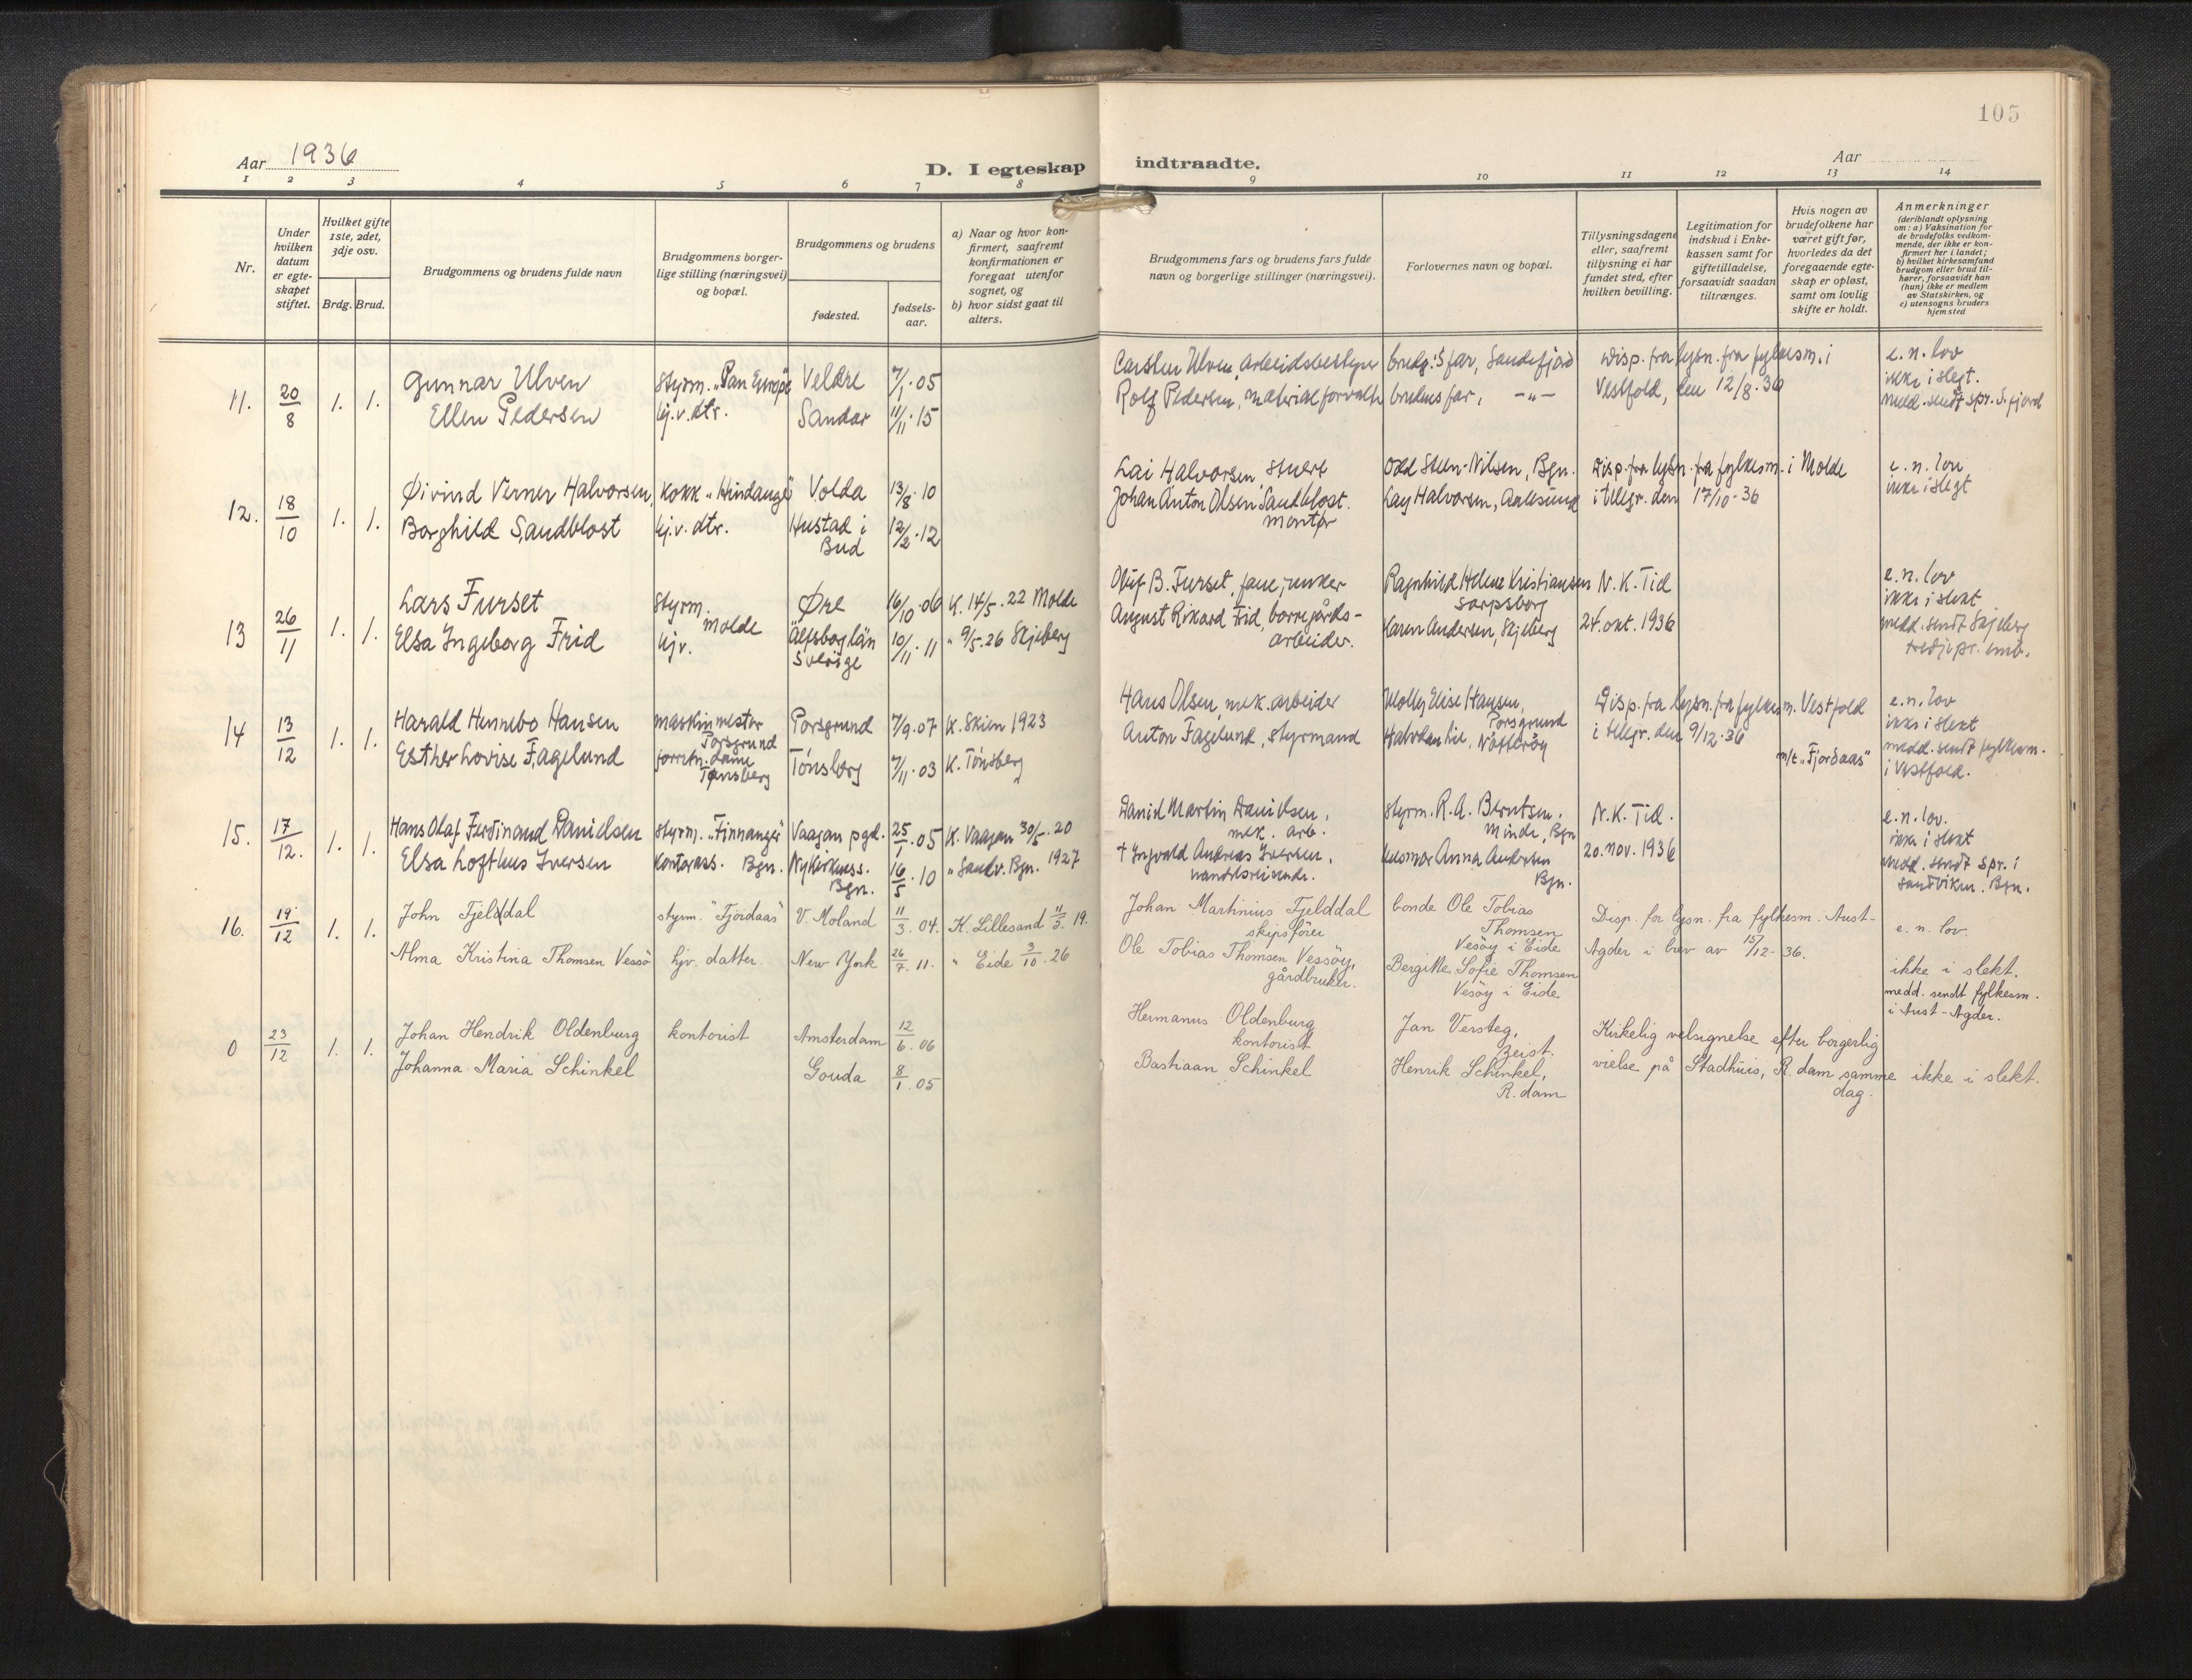 105
Aar 1936
D. I egteskap indtraadte.
Aar
1 2 3 4 5 6 7 8 9 10 11 12 13 14
Nr.
Under hvilken datum er egte-skapet stiftet.
Hvilket gifte 1ste, 2det, 3dje osv.
Brdg. Brud.
Brudgommens og brudens fulde navn
Brudgommens borger-lige stilling (næringsvei) og bopæl.
Brudgommens og brudens
fødested.
fødsels-aar.
a) Naar og hvor kon-firmert, saafremt konfirmationen er foregaaet utenfor sognet, og
b) hvor sidst gaat til alters.
Brudgommens fars og brudens fars fulde navn og borgerlige stillinger (næringsvei).
Forlovernes navn og bopæl.
Tillysningsdagene eller, saafremt tillysning ei har fundet sted, efter hvilken bevilling.
Legitimation for indskud i Enke-kassen samt for giftetilladelse, forsaavidt saadan tiltrænges.
Hvis nogen av brudefolkene har været gift før, hvorledes da det foregaaende egte-skap er opløst, samt om lovlig skifte er holdt.
Anmerkninger
(deriblandt oplysning om: a) Vaksination for de brudefolks vedkom-mende, der ikke er kon-firmert her i landet; b) hvilket kirkesamfund brudgom eller brud til-hører, forsaavidt han (hun) ikke er medlem av Statskirken, og c) utensogns bruders hjemsted
11. 20/8 1. 1.
Gunnar Ulven
Ellen Pedersen
styrm. "Pan Europe"
hj.v. dtr.
Veldre 7/1.05
Sandar 11/11.15
Carsten Ulven, arbeidsbestyrer
Rolf Pedersen, materialforvalter
brudg.'s far, Sandefjord
brudens far, -"-
Disp. fra lysn. fra fylkesm. i
Vestfold, den 12/8.36
e.n. lov
ikke i slegt.
medd. sendt spr. S.fjord
12. 18/10 1. 1.
Øivind Verner Halvorsen,
Borghild Sandblost
kokk "Hindanger"
hj.v. dtr.
Volda 13/8.10
Hustad i Bud 12/2.12
Lai Halvorsen, stuert
Johan Anton Olsen Sandblost.
montør
Odd Steen-Nilsen, Bgn.
Lay Halvorsen, Aalesund
Disp. fra lysn. fra fylkesm. i Molde
i telegr. den 17/10-36
e.n. lov
ikke i slegt
13 26/11 1. 1.
Lars Furset
Elsa Ingeborg Frid
Styrm.
Molde
hj.
Øre 16/10.06
Älfsborg län Sverige 10/11.11
K. 14/5.22 Molde
" 9/5.26 Skjeberg
Oluf B. Furset,
August Rikard Frid, borregårds-
arbeider.
Ragnhild Helene Kristiansen
Sarpsborg
Karen Andersen, Skjeberg
N.K. Tid
24. okt. 1936
e.n. lov
ikke i slekt
medd. sendt Skjeberg
14 13/12 1. 1.
Harald Hennebo Hansen
Esther Lovise Fagelund
maskinmester
Porsgrund
forretn.dame
Tønsberg
Porsgrund 7/9.07
Tønsberg 7/11.03
K. Skien 1923
K. Tønsberg
Hans Olsen, mek. arbeider
Anton Fagelund, styrmand
Molly Elise Hansen,
Porsgrund
Halvdan Lie, Nøtterøy
Disp. fra lysn. fra fylkesm. Vestfold
i telegr. den 9/12.36
m/t "Fjordaas"
e.n. lov
ikke i slekt
medd. sendt fylkesm.
i Vestfold.
15. 17/12. 1. 1.
Hans Olaf Ferdinand Danielsen
Elsa Lofthus Iversen
styrm. "Finnanger"
kontorass. Bgn.
Vaagan pgd. 25/1.05
Nykirkens. Bgn. 16/5.10
K. Vaagan 30/5.20
" Sandv. Bgn. 1927
Daniel Martin Danielsen,
mek. arb.
† Ingvald Andreas Iversen,
handelsreisende.
styrm. R.A. Berntsen.
Minde, Bgn
husmor Anna Andersen
Bgn.
N.K. Tid.
20. nov. 1936
e.n. lov.
ikke i slekt
medd. sendt spr. i
Sandviken. Bgn.
16. 19/12 1. 1.
John Fjelddal
Alma Kristina Thomsen Vessö
styrm. "Fjordaas"
hjv. datter.
V. Moland 11/3.04.
New York 26/7.11.
K. Lillesand 11/5.19.
" Eide 3/10.26
Johan Martinius Fjelddal
skipsfører
Ole Tobias Thomsen Vessöy,
gårdbruker.
bonde Ole Tobias
Thomsen
Vesöy i Eide
Bergitte Sofie Thomsen
Vesöy i Eide.
Disp. for lysn. fra fylkesm. Aust-
Agder i brev av 15/12-36.
e.n. lov.
ikke i slekt.
medd. sendt fylkesm.
i Aust-Agder.
0 23/12 1. 1.
Johan Hendrik Oldenburg
Johanna Maria Schinkel
kontorist
Amsterdam 12/6.06
Gouda 8/1.05
Hermanus Oldenburg
kontorist
Bastiaan Schinkel
Jan Versteg,
Zeist.
Henrik Schinkel,
R.dam
Kirkelig velsignelse efter borgerlig
vielse på Stadhuis, R.dam samme
dag.
ikke i slekt.